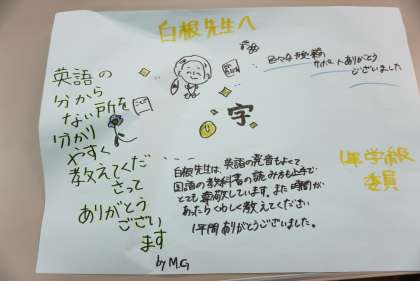 白根先生へ
英語の
分から
ない所を
分かり
やすく
教えてくだ
さって
ありがとう
ござい
ます
by M.G
サポートありがとう
ございました
字
白根先生は、英語の発音もよくて
国語の教科書の読み方も上手で
とても尊敬しています。また時間が
あったらくわしく教えてください
1年間ありがとうございました。
1年学級
委員